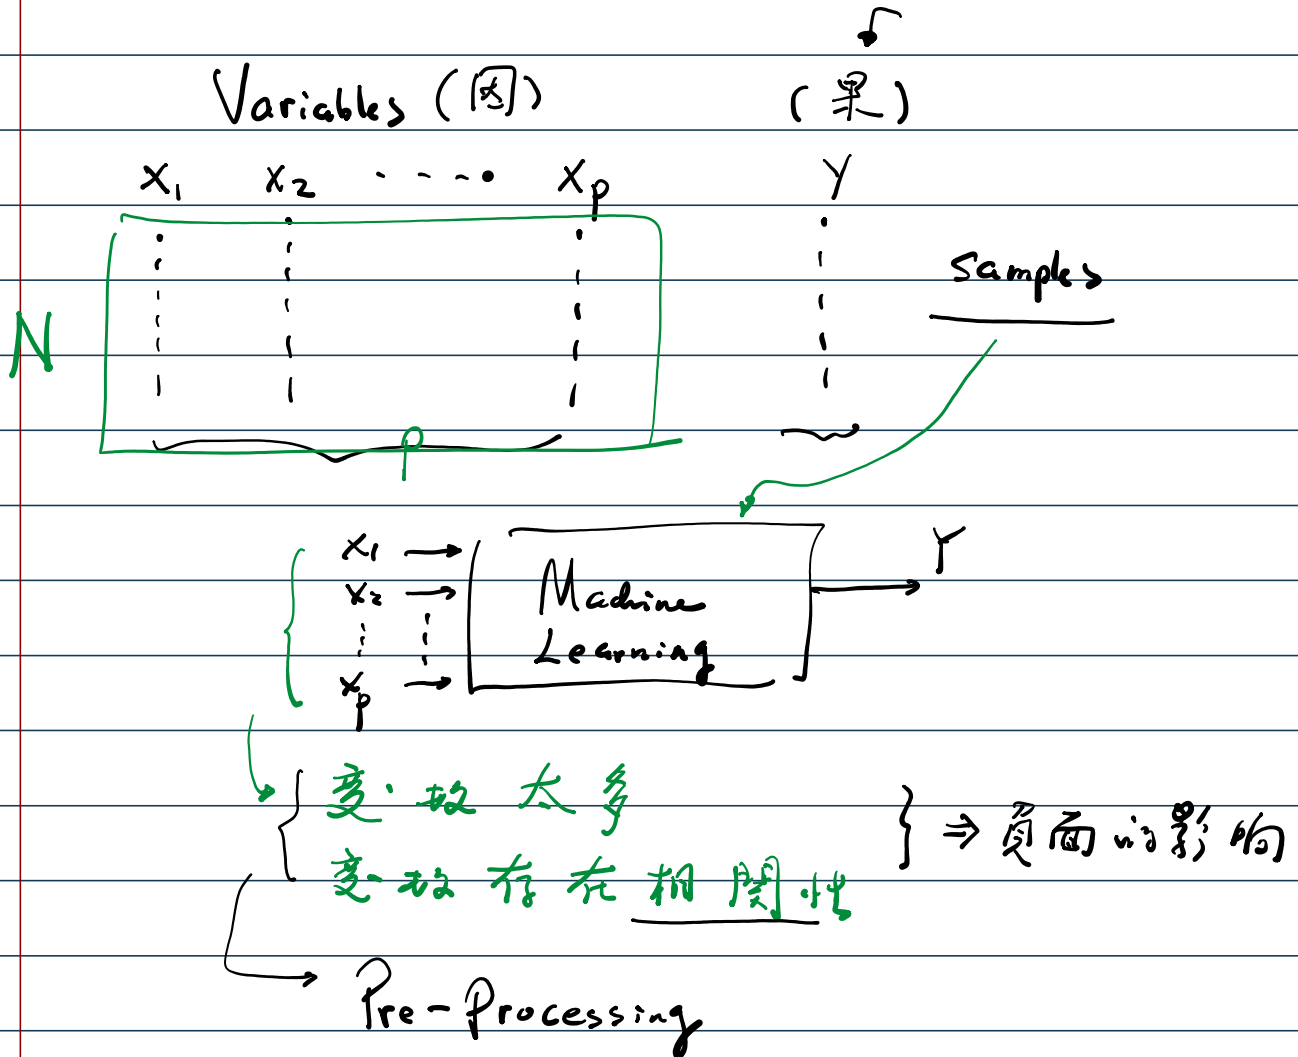 Variables (因) (果)
X1 X2 ····· Xp Y
Samples
N
p
X1
X2
Xp
Machine
Learning
Y
變數太多
變數存在相關性
} ⇒ 負面的影响
Pre-Processing